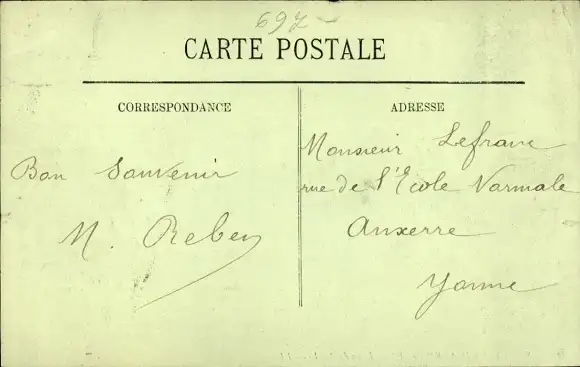 697
CARTE POSTALE
CORRESPONDANCE
ADRESSE
Bon Souvenir
Monsieur Lefranc
rue de l'École Normale
Auxerre
Yonne